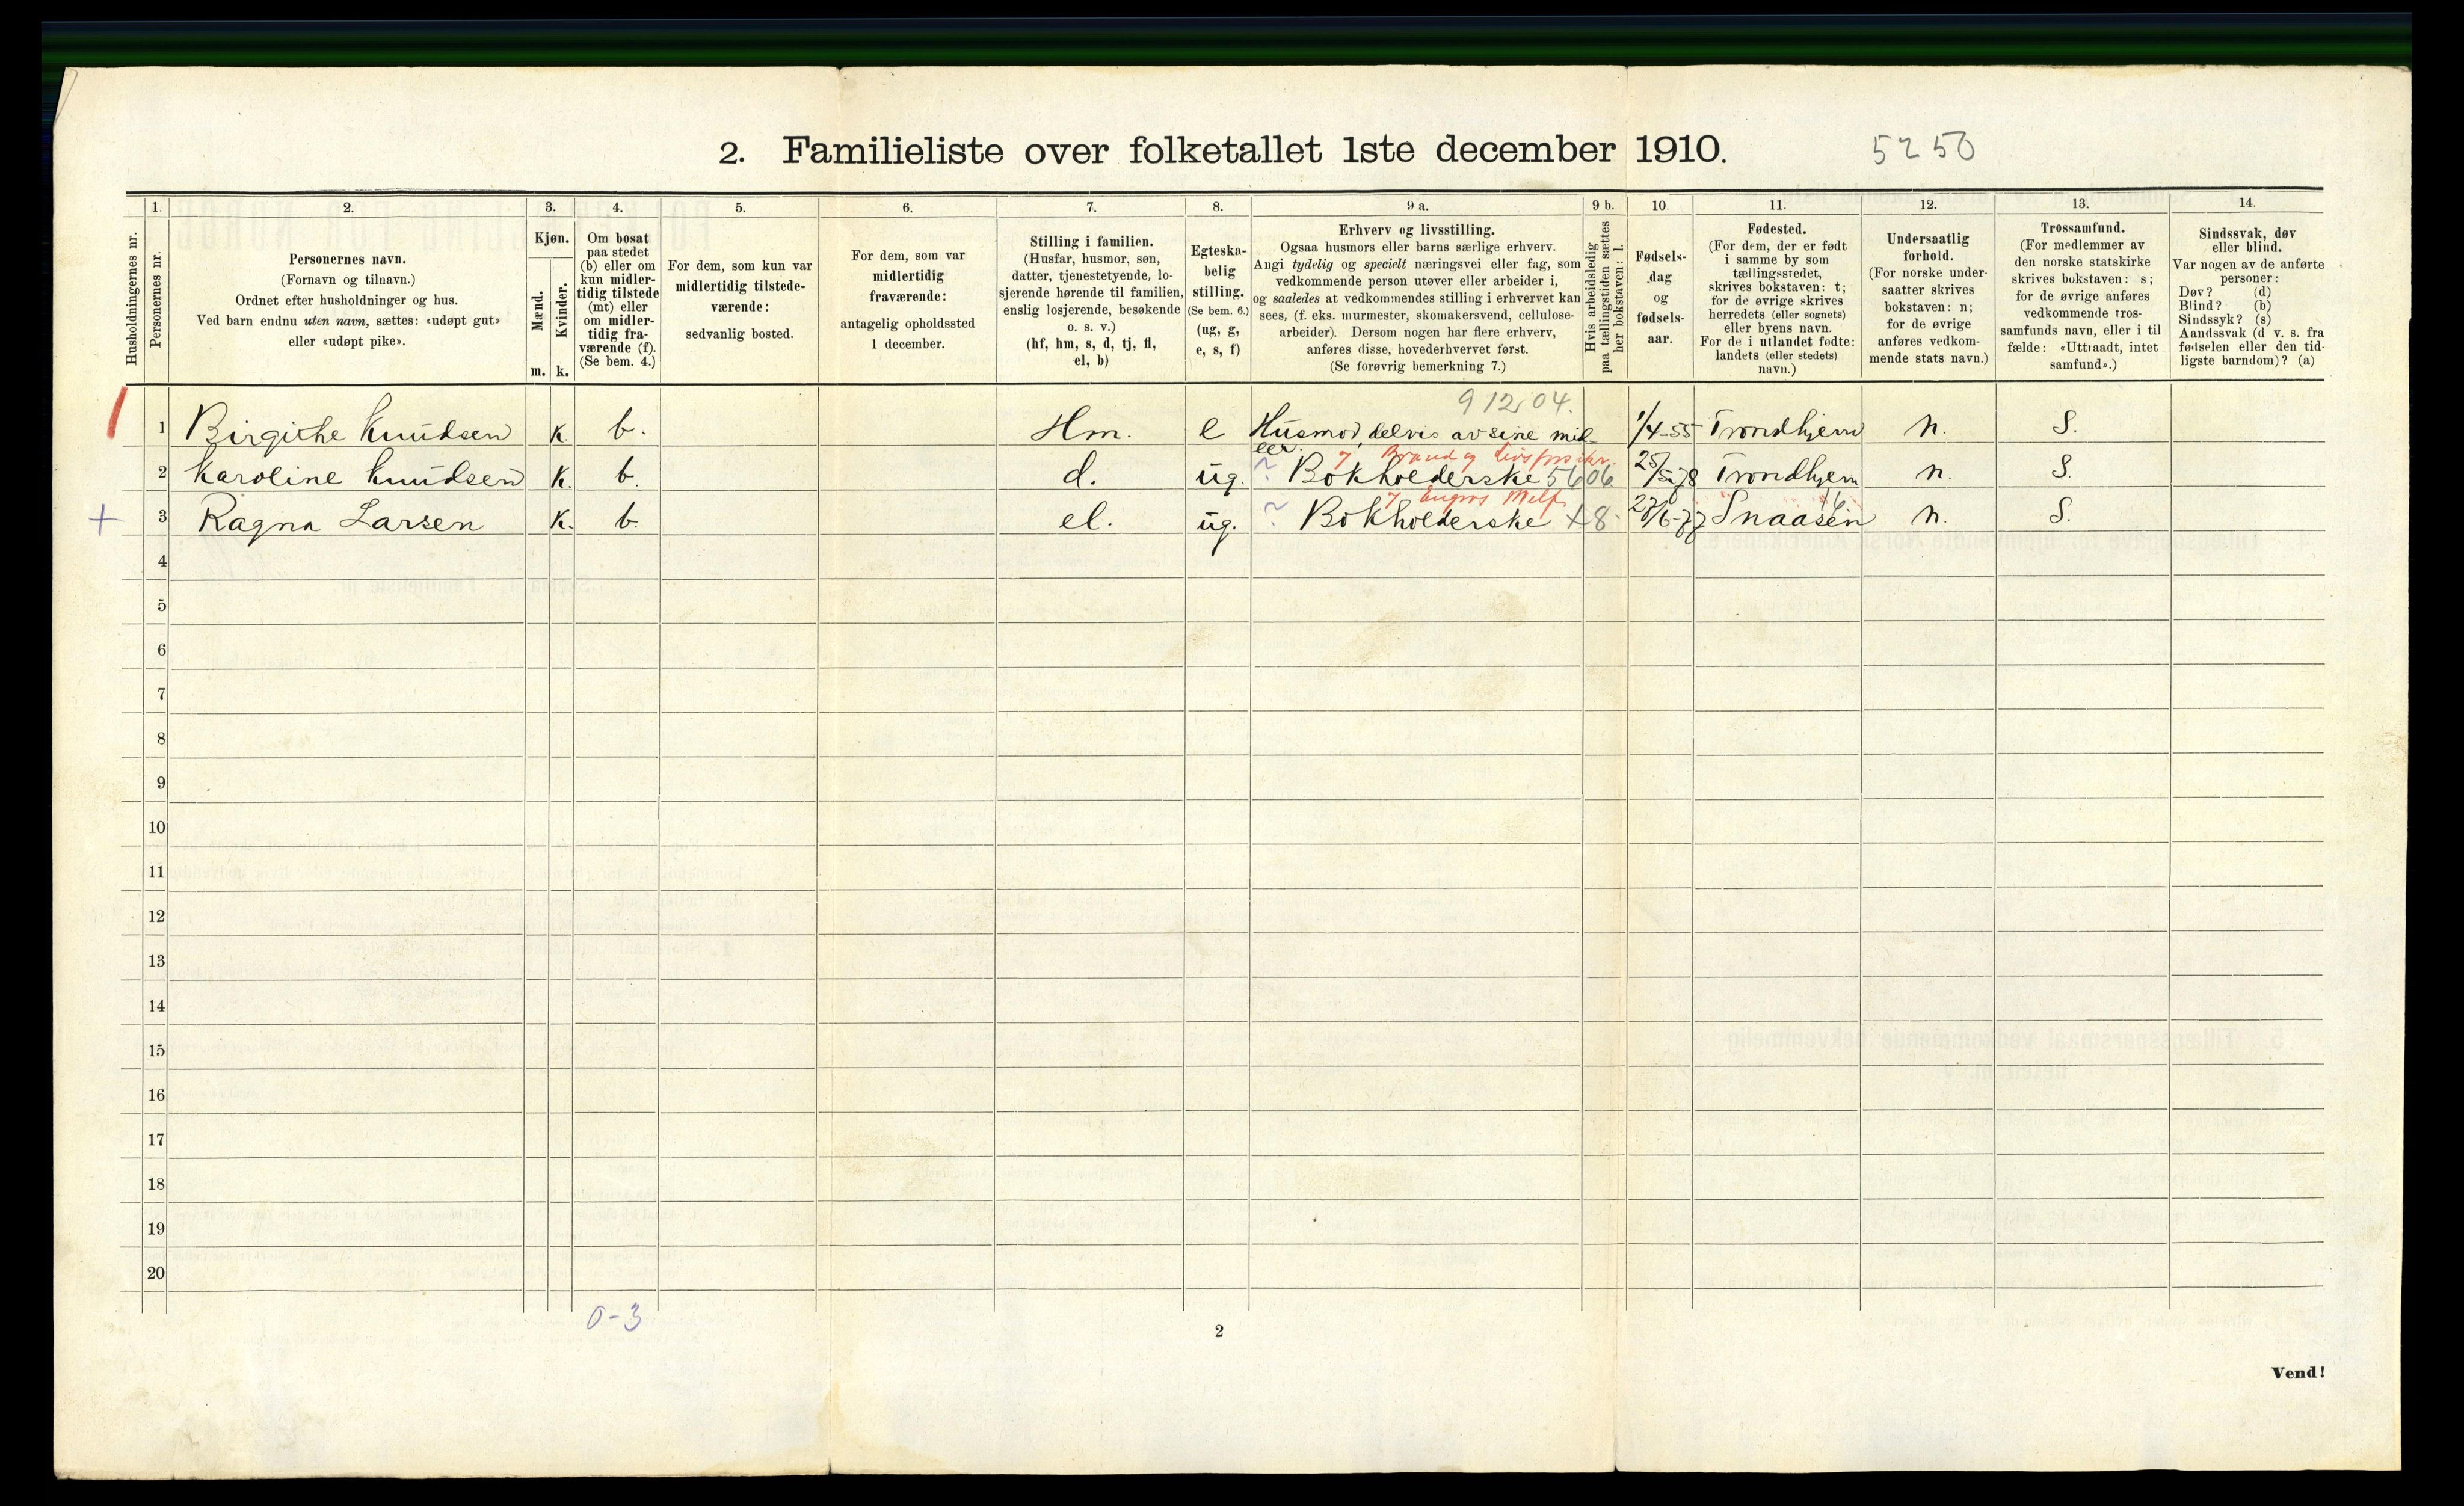 2. Familieliste over folketallet 1ste december 1910.
5250
Husholdningernes nr.
1.
Personernes nr.
2.
Personernes navn.
(Fornavn og tilnavn.)
Ordnet efter husholdninger og hus.
Ved barn endnu uten navn, sættes: «udøpt gut»
eller «udøpt pike».
3.
Kjøn.
Mænd.
m.
Kvinder.
k.
4.
Om bosat
paa stedet
(b) eller om
kun midler-
tidig tilstede
(mt) eller
om midler-
tidig fra-
værende (f).
(Se bem. 4.)
5.
For dem, som kun var
midlertidig tilstede-
værende:
sedvanlig bosted.
6.
For dem, som var
midlertidig
fraværende:
antagelig opholdssted
1 december.
7.
Stilling i familien.
(Husfar, husmor, søn,
datter, tjenestetyende, lo-
sjerende hørende til familien,
enslig losjerende, besøkende
o. s. v.)
(hf, hm, s, d, tj, fl,
el, b)
8.
Egteska-
belig
stilling.
(Se bem. 6.)
(ug, g,
e, s, f)
9 a.
Erhverv og livsstilling.
Ogsaa husmors eller barns særlige erhverv.
Angi tydelig og specielt næringsvei eller fag, som
vedkommende person utøver eller arbeider i,
og saaledes at vedkommendes stilling i erhvervet kan
sees, (f. eks. murmester, skomakersvend, cellulose-
arbeider). Dersom nogen har flere erhverv,
anføres disse, hovederhvervet først.
(Se forøvrig bemerkning 7.)
9 b.
Hvis arbeidsledig
paa tællingstiden sættes
her bokstaven: l.
10.
Fødsels-
dag
og
fødsels-
aar.
11.
Fødested.
(For dem, der er født
i samme by som
tællingsstedet,
skrives bokstaven: t;
for de øvrige skrives
herredets (eller sognets)
eller byens navn.
For de i utlandet fødte:
landets (eller stedets)
navn.)
12.
Undersaatlig
forhold.
(For norske under-
saatter skrives
bokstaven: n;
for de øvrige
anføres vedkom-
mende stats navn.)
13.
Trossamfund.
(For medlemmer av
den norske statskirke
skrives bokstaven: s;
for de øvrige anføres
vedkommende tros-
samfunds navn, eller i til
fælde: «Uttraadt, intet
samfund».)
14.
Sindssvak, døv
eller blind.
Var nogen av de anførte
personer:
Døv? (d)
Blind? (b)
Sindssyk? (s)
Aandssvak (d v. s. fra
fødselen eller den tid-
ligste barndom)? (a)
91204.
1 Birgithe Knudsen K. b. Hm. e Husmor, delvis av sine mid- 1/4-55 Trondhjem n. S.
Brand og livsforsikr.
2 Karoline Knudsen K. b. d. ug. Bokholderske 5606 25/5-78 Trondhjem n. S.
Engros
+ 3 Ragna Larsen K. b. el. ug. Bokholderske Snaasen n. S.
4
5
6
7
8
9
10
11
12
13
14
15
16
17
18
19
20
0-3
2
Vend!